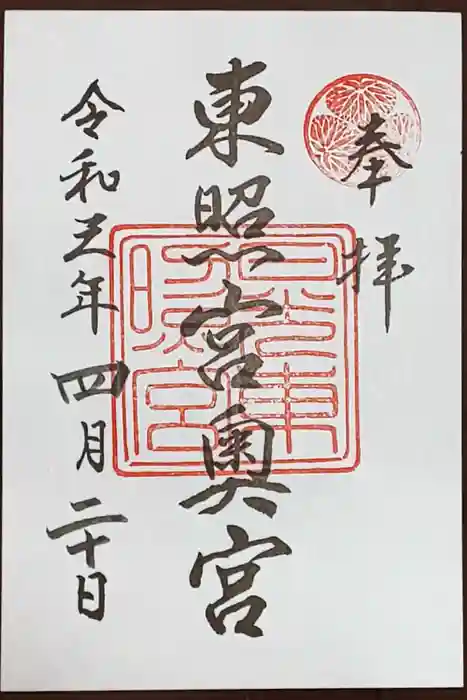 奉拝
東照宮奥宮
令和三年四月二十日
日光東
照宮